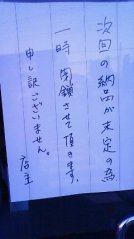 次回の納品が未定の為
一時閉鎖させて頂きます。
申し訳ございません。
店主